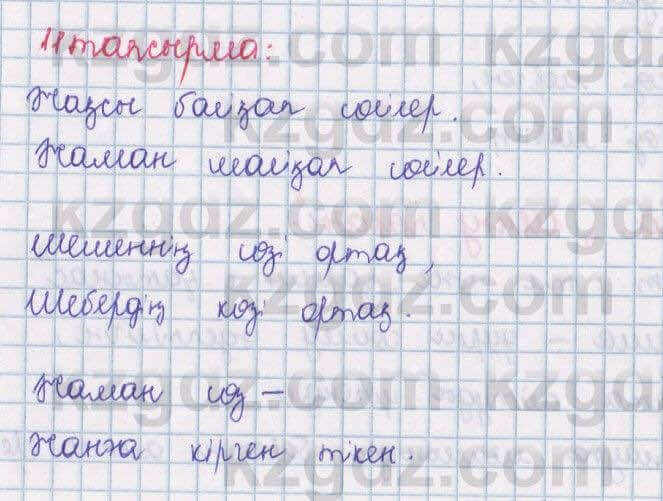 11 тапсырма:
Жақсы байқап сөйлер.
Жаман шайқап сөйлер.
Шешеннің сөзі ортақ,
Шебердің көзі ортақ.
Жаман сөз –
Жанға кірген тікен.